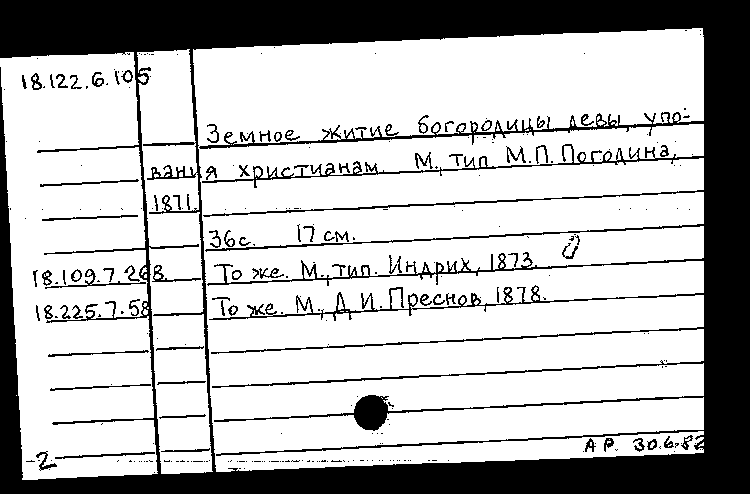 18.122.6.105
Земное житие богородицы девы, упо-
вания христианам. М., тип. М.П. Погодина,
1871.
36с. 17 см.
18.109.7.268. То же. М., тип. Индрих, 1873.
18.225.7.58 То же. М., Д.И. Преснов, 1878.
2
АР. 30.6.82